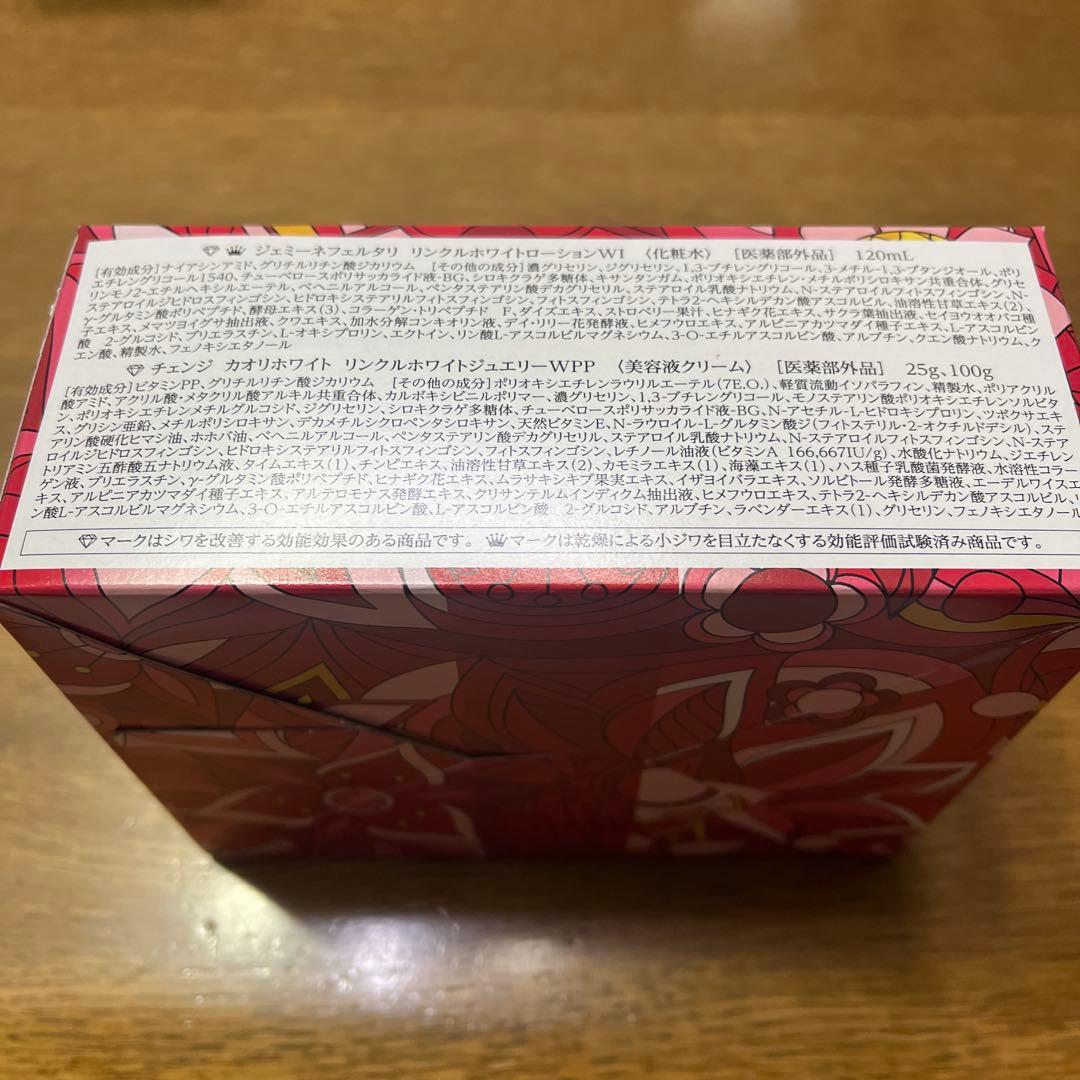 ジェミーネフェルタリ リンクルホワイトローションWI 〈化粧水〉 [医薬部外品] 120mL
[有効成分]ナイアシンアミド、グリチルリチン酸ジカリウム [その他の成分]濃グリセリン、ジグリセリン、1,3-ブチレングリコール、3-メチル-1,3-ブタンジオール、ポリ
エチレングリコール1540、チューベロースポリサッカライド液-BG、シロキクラゲ多糖体、キサンタンガム、ポリオキシエチレン・メチルポリシロキサン共重合体、グリセ
リンモノ2-エチルヘキシルエーテル、ベヘニルアルコール、ペンタステアリン酸デカグリセリル、ステアロイル乳酸ナトリウム、N-ステアロイルフィトスフィンゴシン、N-
ステアロイルジヒドロスフィンゴシン、ヒドロキシステアリルフィトスフィンゴシン、フィトスフィンゴシン、テトラ2-ヘキシルデカン酸アスコルビル、油溶性甘草エキス(2)、
γ-グルタミン酸ポリペプチド、酵母エキス(3)、コラーゲン・トリペプチド F、ダイズエキス、ストロベリー果汁、ヒナギク花エキス、サクラ葉抽出液、セイヨウオオバコ種
子エキス、メマツヨイグサ抽出液、クワエキス、加水分解コンキオリン液、デイ・リリー花発酵液、ヒメフウロエキス、アルピニアカツマダイ種子エキス、L-アスコルビン
酸 2-グルコシド、プリエラスチン、L-オキシプロリン、エクトイン、リン酸L-アスコルビルマグネシウム、3-O-エチルアスコルビン酸、アルブチン、クエン酸ナトリウム、ク
エン酸、精製水、フェノキシエタノール
チェンジ カオリホワイト リンクルホワイトジュエリーWPP 〈美容液クリーム〉 [医薬部外品] 25g、100g
[有効成分]ビタミンPP、グリチルリチン酸ジカリウム [その他の成分]ポリオキシエチレンラウリルエーテル(7E.O.)、軽質流動イソパラフィン、精製水、ポリアクリル
酸アミド、アクリル酸・メタクリル酸アルキル共重合体、カルボキシビニルポリマー、濃グリセリン、1,3-ブチレングリコール、モノステアリン酸ポリオキシエチレンソルビタ
ン、ポリオキシエチレンメチルグルコシド、ジグリセリン、シロキクラゲ多糖体、チューベロースポリサッカライド液-BG、N-アセチル-L-ヒドロキシプロリン、ツボクサエキ
ス、グリシン亜鉛、メチルポリシロキサン、デカメチルシクロペンタシロキサン、天然ビタミンE、N-ラウロイル-L-グルタミン酸ジ(フィトステリル・2-オクチルドデシル)、ステ
アリン酸硬化ヒマシ油、ホホバ油、ベヘニルアルコール、ペンタステアリン酸デカグリセリル、ステアロイル乳酸ナトリウム、N-ステアロイルフィトスフィンゴシン、N-ステア
ロイルジヒドロスフィンゴシン、ヒドロキシステアリルフィトスフィンゴシン、フィトスフィンゴシン、レチノール油液(ビタミンA 166,667IU/g)、水酸化ナトリウム、ジエチレン
トリアミン五酢酸五ナトリウム液、タイムエキス(1)、チンピエキス、油溶性甘草エキス(2)、カモミラエキス(1)、海藻エキス(1)、ハス種子乳酸菌発酵液、水溶性コラー
ゲン液、プリエラスチン、γ-グルタミン酸ポリペプチド、ヒナギク花エキス、ムラサキシキブ果実エキス、イザヨイバラエキス、ソルビトール発酵多糖液、エーデルワイスエ
キス、アルピニアカツマダイ種子エキス、アルテロモナス発酵エキス、クリサンテルムインディクム抽出液、ヒメフウロエキス、テトラ2-ヘキシルデカン酸アスコルビル、リ
ン酸L-アスコルビルマグネシウム、3-O-エチルアスコルビン酸、L-アスコルビン酸 2-グルコシド、アルブチン、ラベンダーエキス(1)、グリセリン、フェノキシエタノール
マークはシワを改善する効能効果のある商品です。 マークは乾燥による小ジワを目立たなくする効能評価試験済み商品です。